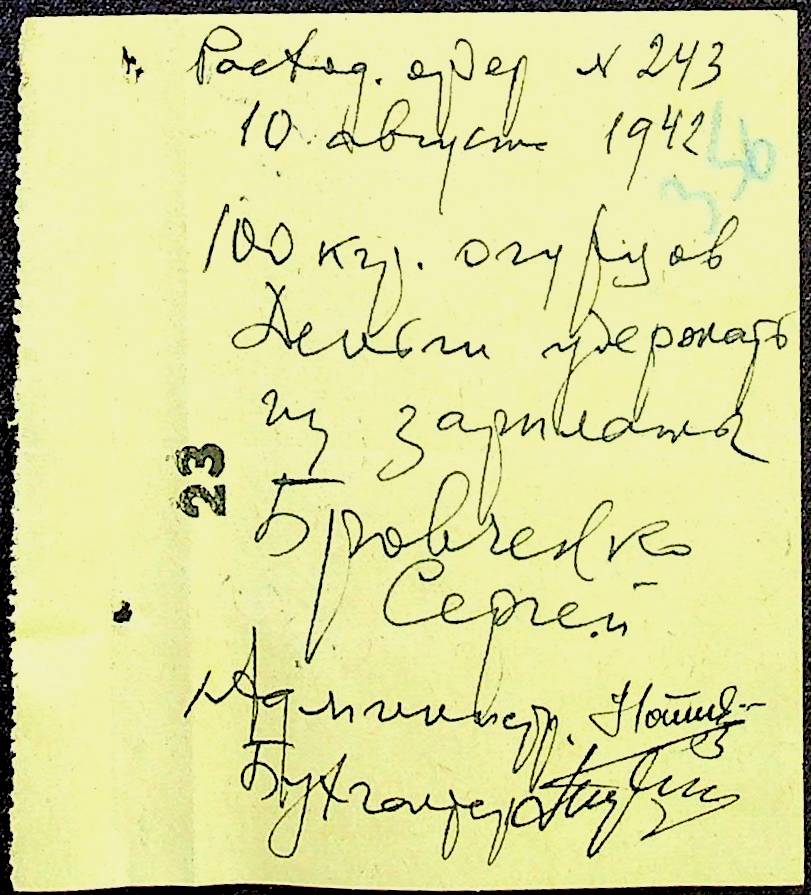 Расход. ордер N 243
10 августа 1942
350
100 кгр. огурцов
Деньги удержать
из зарплаты
23
Бровченко
Сергей
Администр.
Бухгалтер